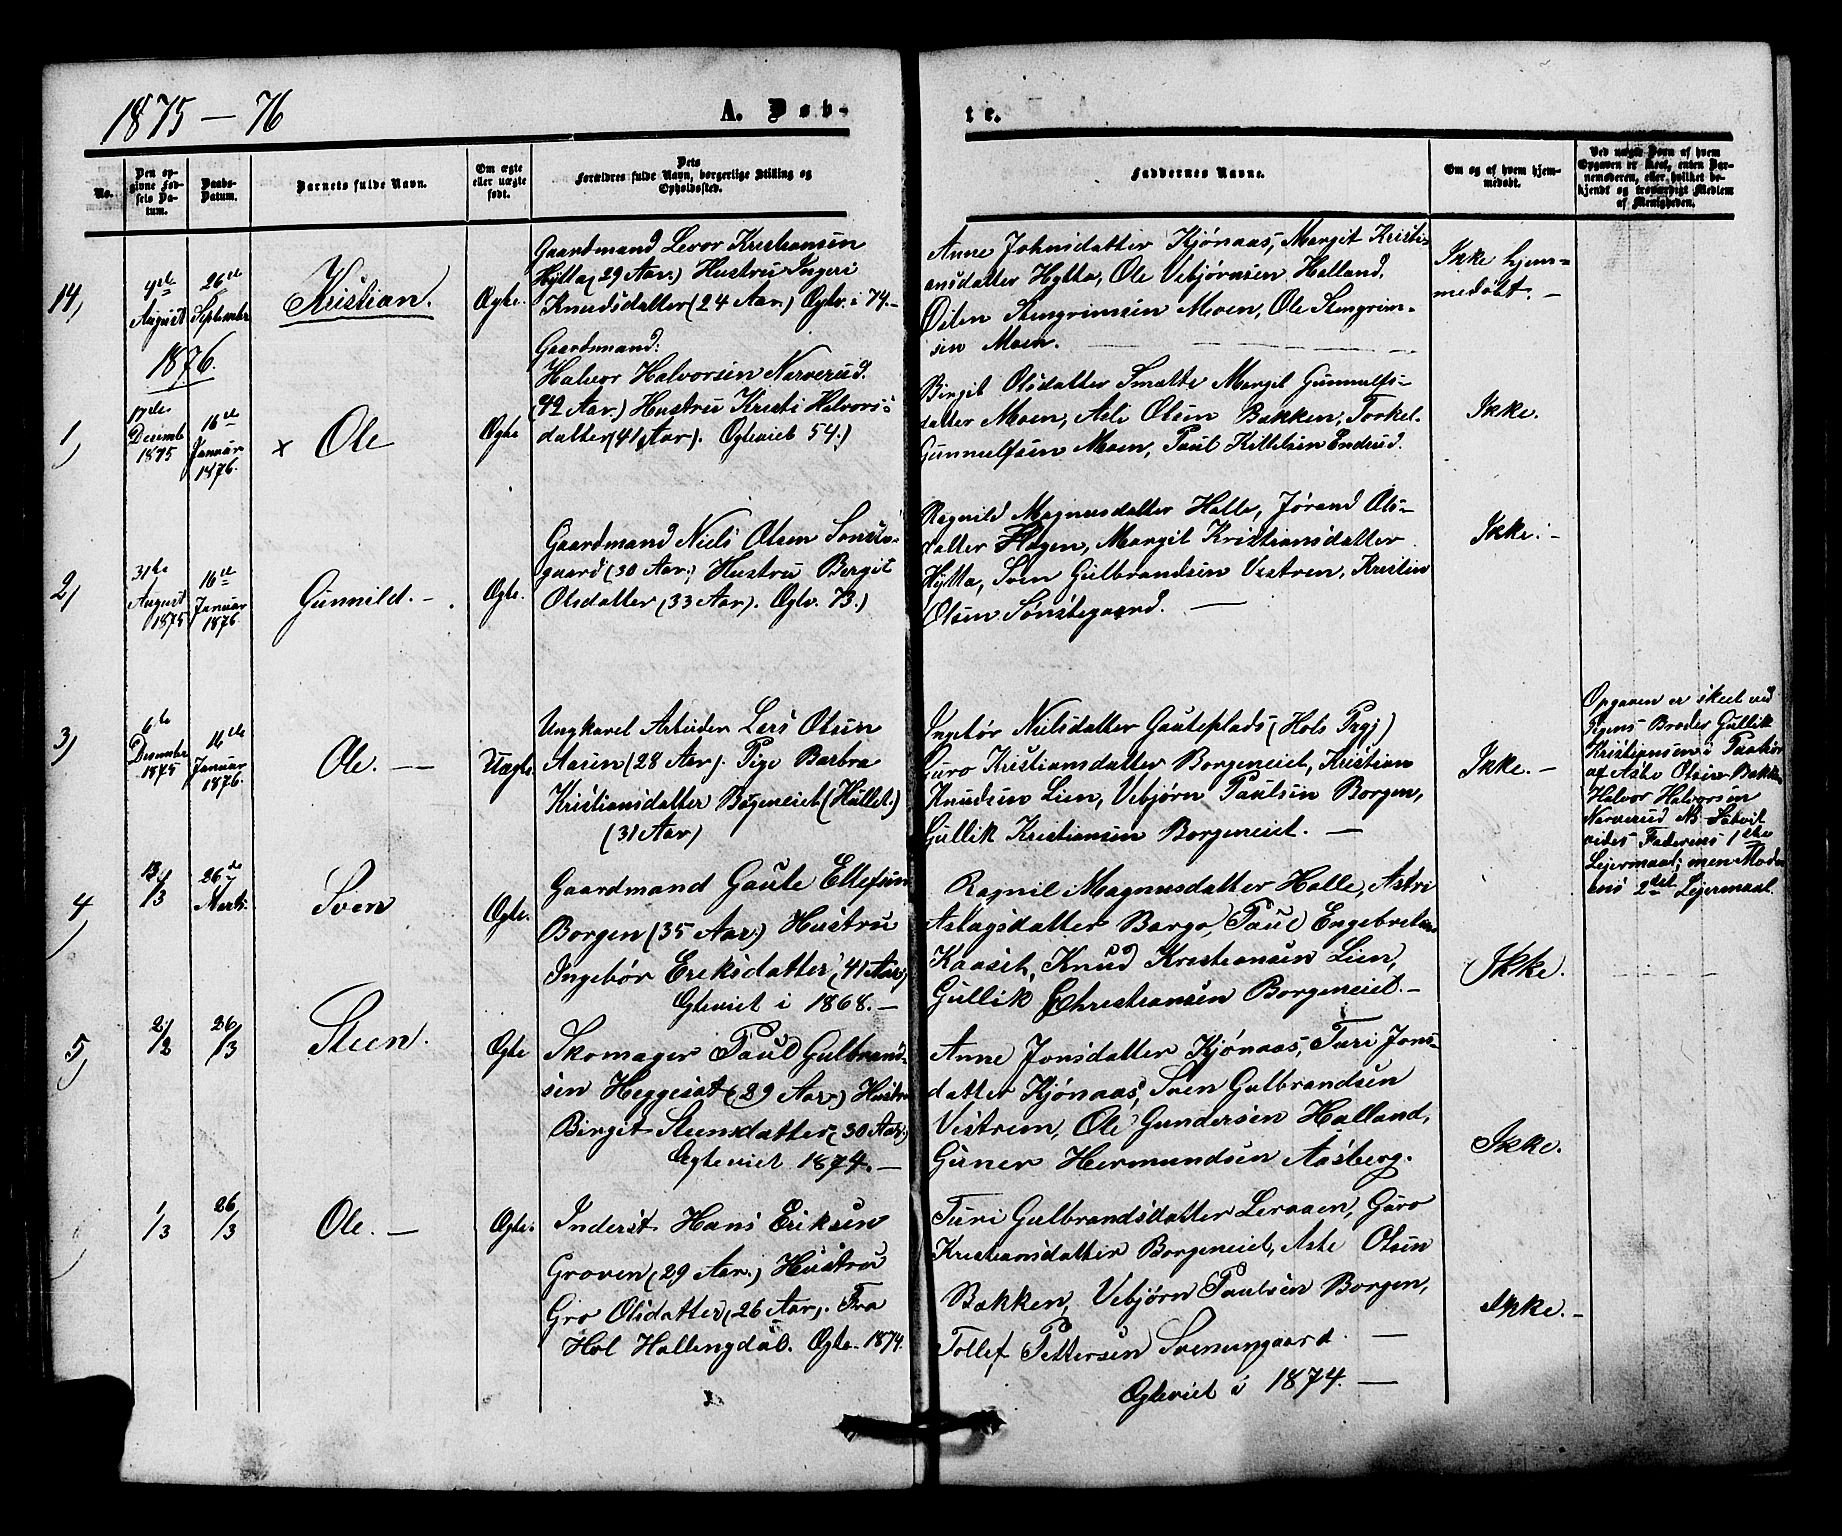 1875 - 76
A. Døb-
te.
No.
Den op-
givne Fød-
sels Da-
tum.
Daabs-
Datum.
Barnets fulde Navn.
Om ægte
eller uægte
født.
Dets
Forældres fulde Navn, borgerlige Stilling og
Opholdssted.
Faddernes Navne.
Om og af hvem hjem-
medøbt.
Ved uægte Børn af hvem
Opgaven er skeet, enten Bar-
nemoderen, eller hvilket be-
kjendt og troværdigt Medlem
af Menigheden.
14)
August
26de
September
Kristian.
Ægte.
Gaardmand Levor Kristiansen
Hytta (29 Aar) Hustru Ingeri
Knudsdatter (24 Aar.) Ægtv. i 74.-
Anne Johnsdatter Kjønaas, Margit Kristi-
ansdatter Hytta, Ole Vebjørnsen Halland,
Østen Stengrimsen Moen, Ole Stengrim-
sen Moen.
Ikke hjem-
medøbt. -
1876.
1)
17de
Decembr
1875
16de
Januar
1876.
x Ole
Ægte
Gaardmand:
Halvor Halvorsen Narverud.
(42 Aar.) Hustru Kristi Halvors-
datter (41 Aar). Ægteviet 54.)
Birgit Olsdatter Smætte Margit Gunnulfs-
datter Moen, Asle Olsen Bakken, Torkel
Gunnulfsen Moen, Paul Kittelsen Enderud.
Ikke.
2)
31te
August
1875
16de
Januar
1876.
Gunnild. -
Ægte.
Gaardmand Niels Olsen Sønste-
gaard (30 Aar; Hustru Bergit
Olsdatter (33 Aar). Ægtv. 73.)
Ragnild Magnusdatter Halle, Jørand Ols-
datter Hagen, Margit Kristiansdatter
Hytta, Sven Gulbrandsen Vestren, Kristen
Olsen Sønstegaard. -
Ikke. -
3)
6te
Decembr
1875
16de
Januar
1876.
Ole. -
Uægte.
Ungkarl Arbeider Lars Olsen
Aasen (28 Aar). Pige Barbra
Kristiansdatter Borgeneiet (Hallet.)
(31 Aar)
Ingebør Nielsdatter Gauteplads (Hols Prgj)
Guro Kristiansdatter Borgeneiet, Kristian
Knudsen Lien, Vebjørn Paulsen Borgen,
Gullik Kristiansen Borgeneiet. -
Ikke. -
Opgaven er skeet ved
Pigens Broder Gullik
Kristiansen i Paahør
af Asle Olsen Bakken
Halvor Halvorsen
Narverud NB. Saavit
vides Faderens 1ste
Leiermaal; men Moder-
ens 2det Leiermaal.
4)
13/3
26de
Marts.
Sven
Ægte.
Gaardmand Gaute Ellefsen
Borgen (35 Aar.) Hustru
Ingebør Eriksdatter (41 Aar)
Ægteviet i 1868. -
Ragnil Magnusdatter Halle, Astri
Aslagsdatter Bargo, Paul Engebretsen
Kaaset, Knud Kristiansen Lien,
Gullik Christiansen Borgeneiet -
Ikke.
5)
2/2
26/3
Steen.
Ægte
Skomager Paul Gulbrand-
sen Heggeset (29 Aar.) Hustru
Birgit Steensdatter (30 Aar.)
Ægteviet 1874. -
Anne Jonsdatter Kjønaas, Turi Jons-
datter Kjønaas, Sven Gulbrandsen
Vestren, Ole Gundersen Halland,
Guner Hermundsen Aasberg.
Ikke.
1/3
26/3
Ole. -
Ægte.
Inderst Hans Eriksen
Groven (29 Aar.) Hustru
Gro Olsdatter (26 Aar). Fra
Hol Hallingdal. Ægte. 1874.
Turi Gulbrandsdatter Leraaen, Guro
Kristiansdatter Borgeneiet, Asle Olsen
Bakken, Vebjørn Paulsen Borgen,
Tollef Pettersen Svenungaard. -
Ægteviet i 1874. -
Ikke. -